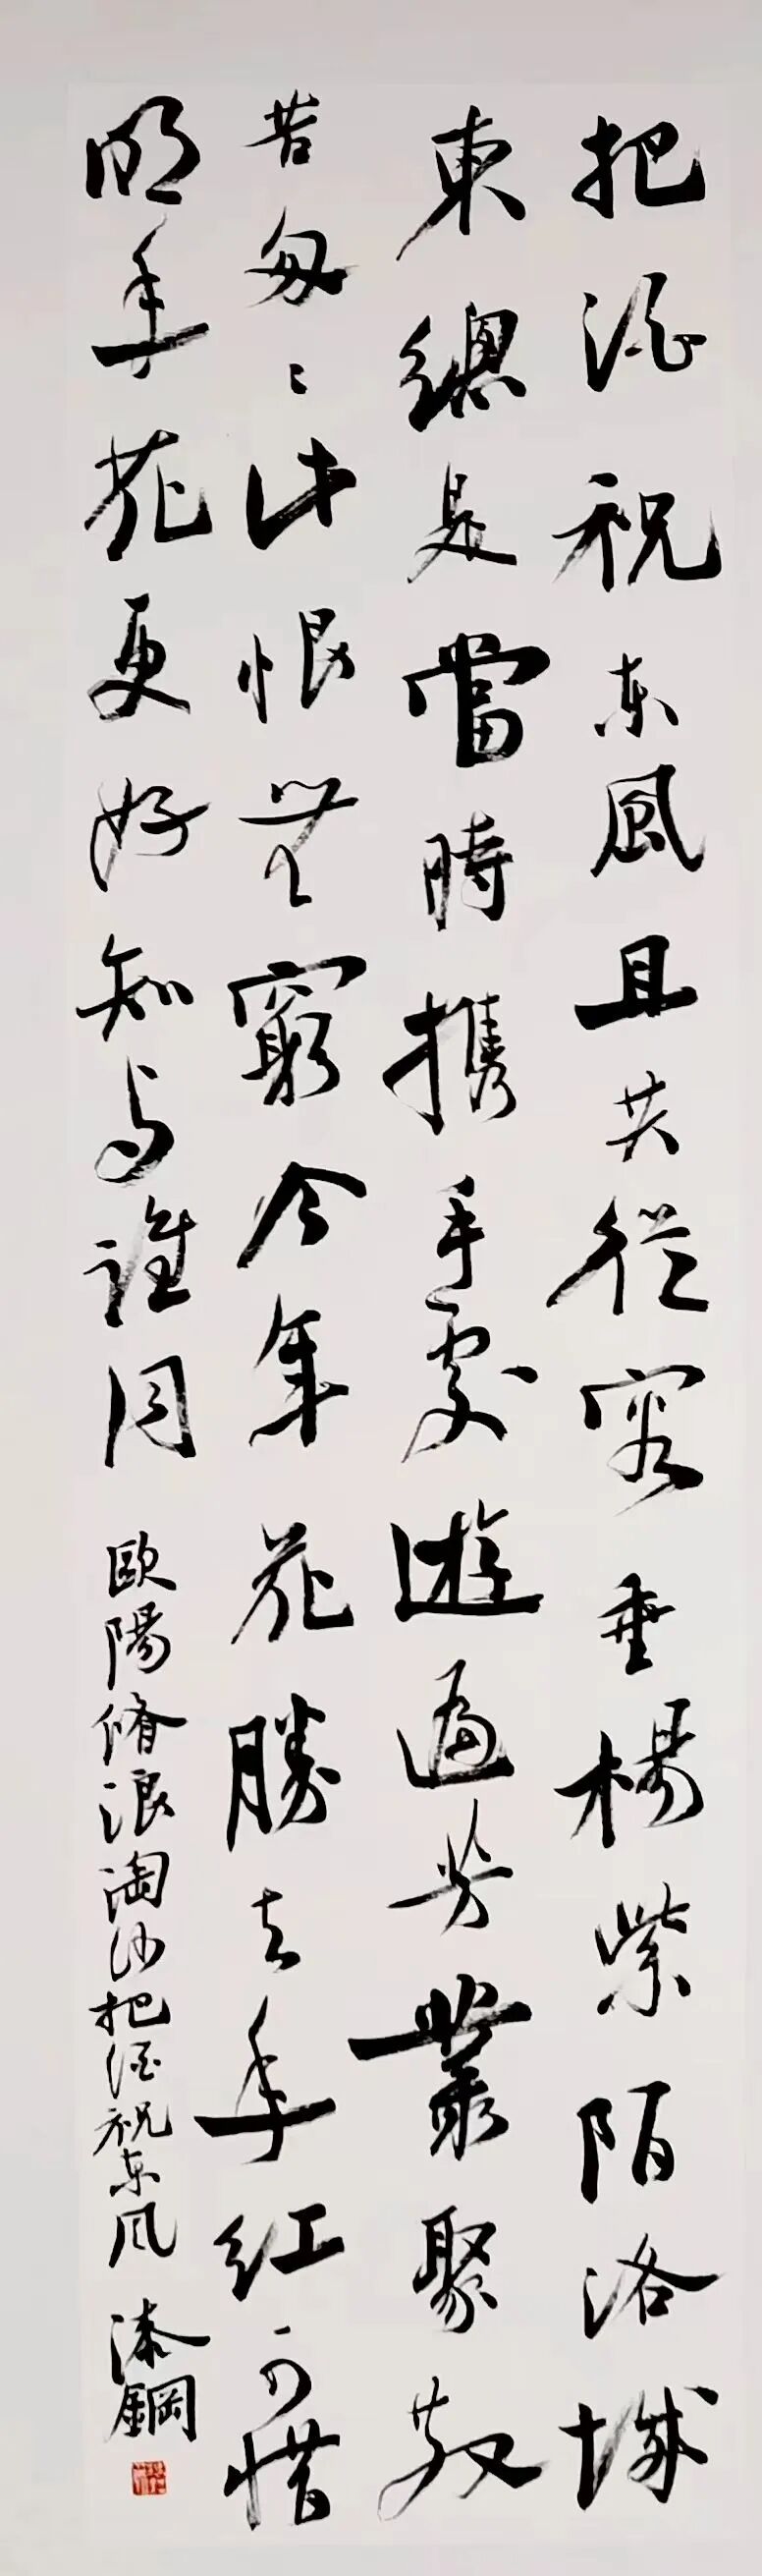 把酒祝东風且共從容垂楊紫陌洛城
東總是當時携手處遊遍芳叢聚散
苦匆〻此恨無窮今年花勝去年紅可惜
明年花更好知与誰同
歐陽脩浪淘沙把酒祝东风 漆鋼